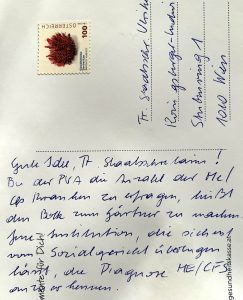 ÖSTERREICH
100
Fr. Staatssekr. Ulrike
Königsberger-Ludwig
Stubenring 1
1010 Wien
Gute Idee, Fr. Staatssekretärin!
Bei der PVA die Anzahl der ME/
CFS Kranken zu erfragen, heißt
den Bock zum Gärtner zu machen
Jene Institution, die sich erst
vom Sozialgericht überzeugen
lässt, die Diagnose ME/CFS
anzuerkennen.
gesundheitskasse.at